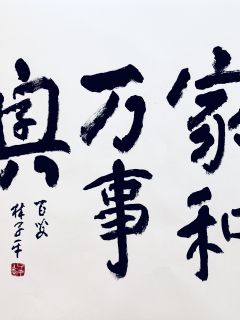 家和
万事
興
百岁
林子平